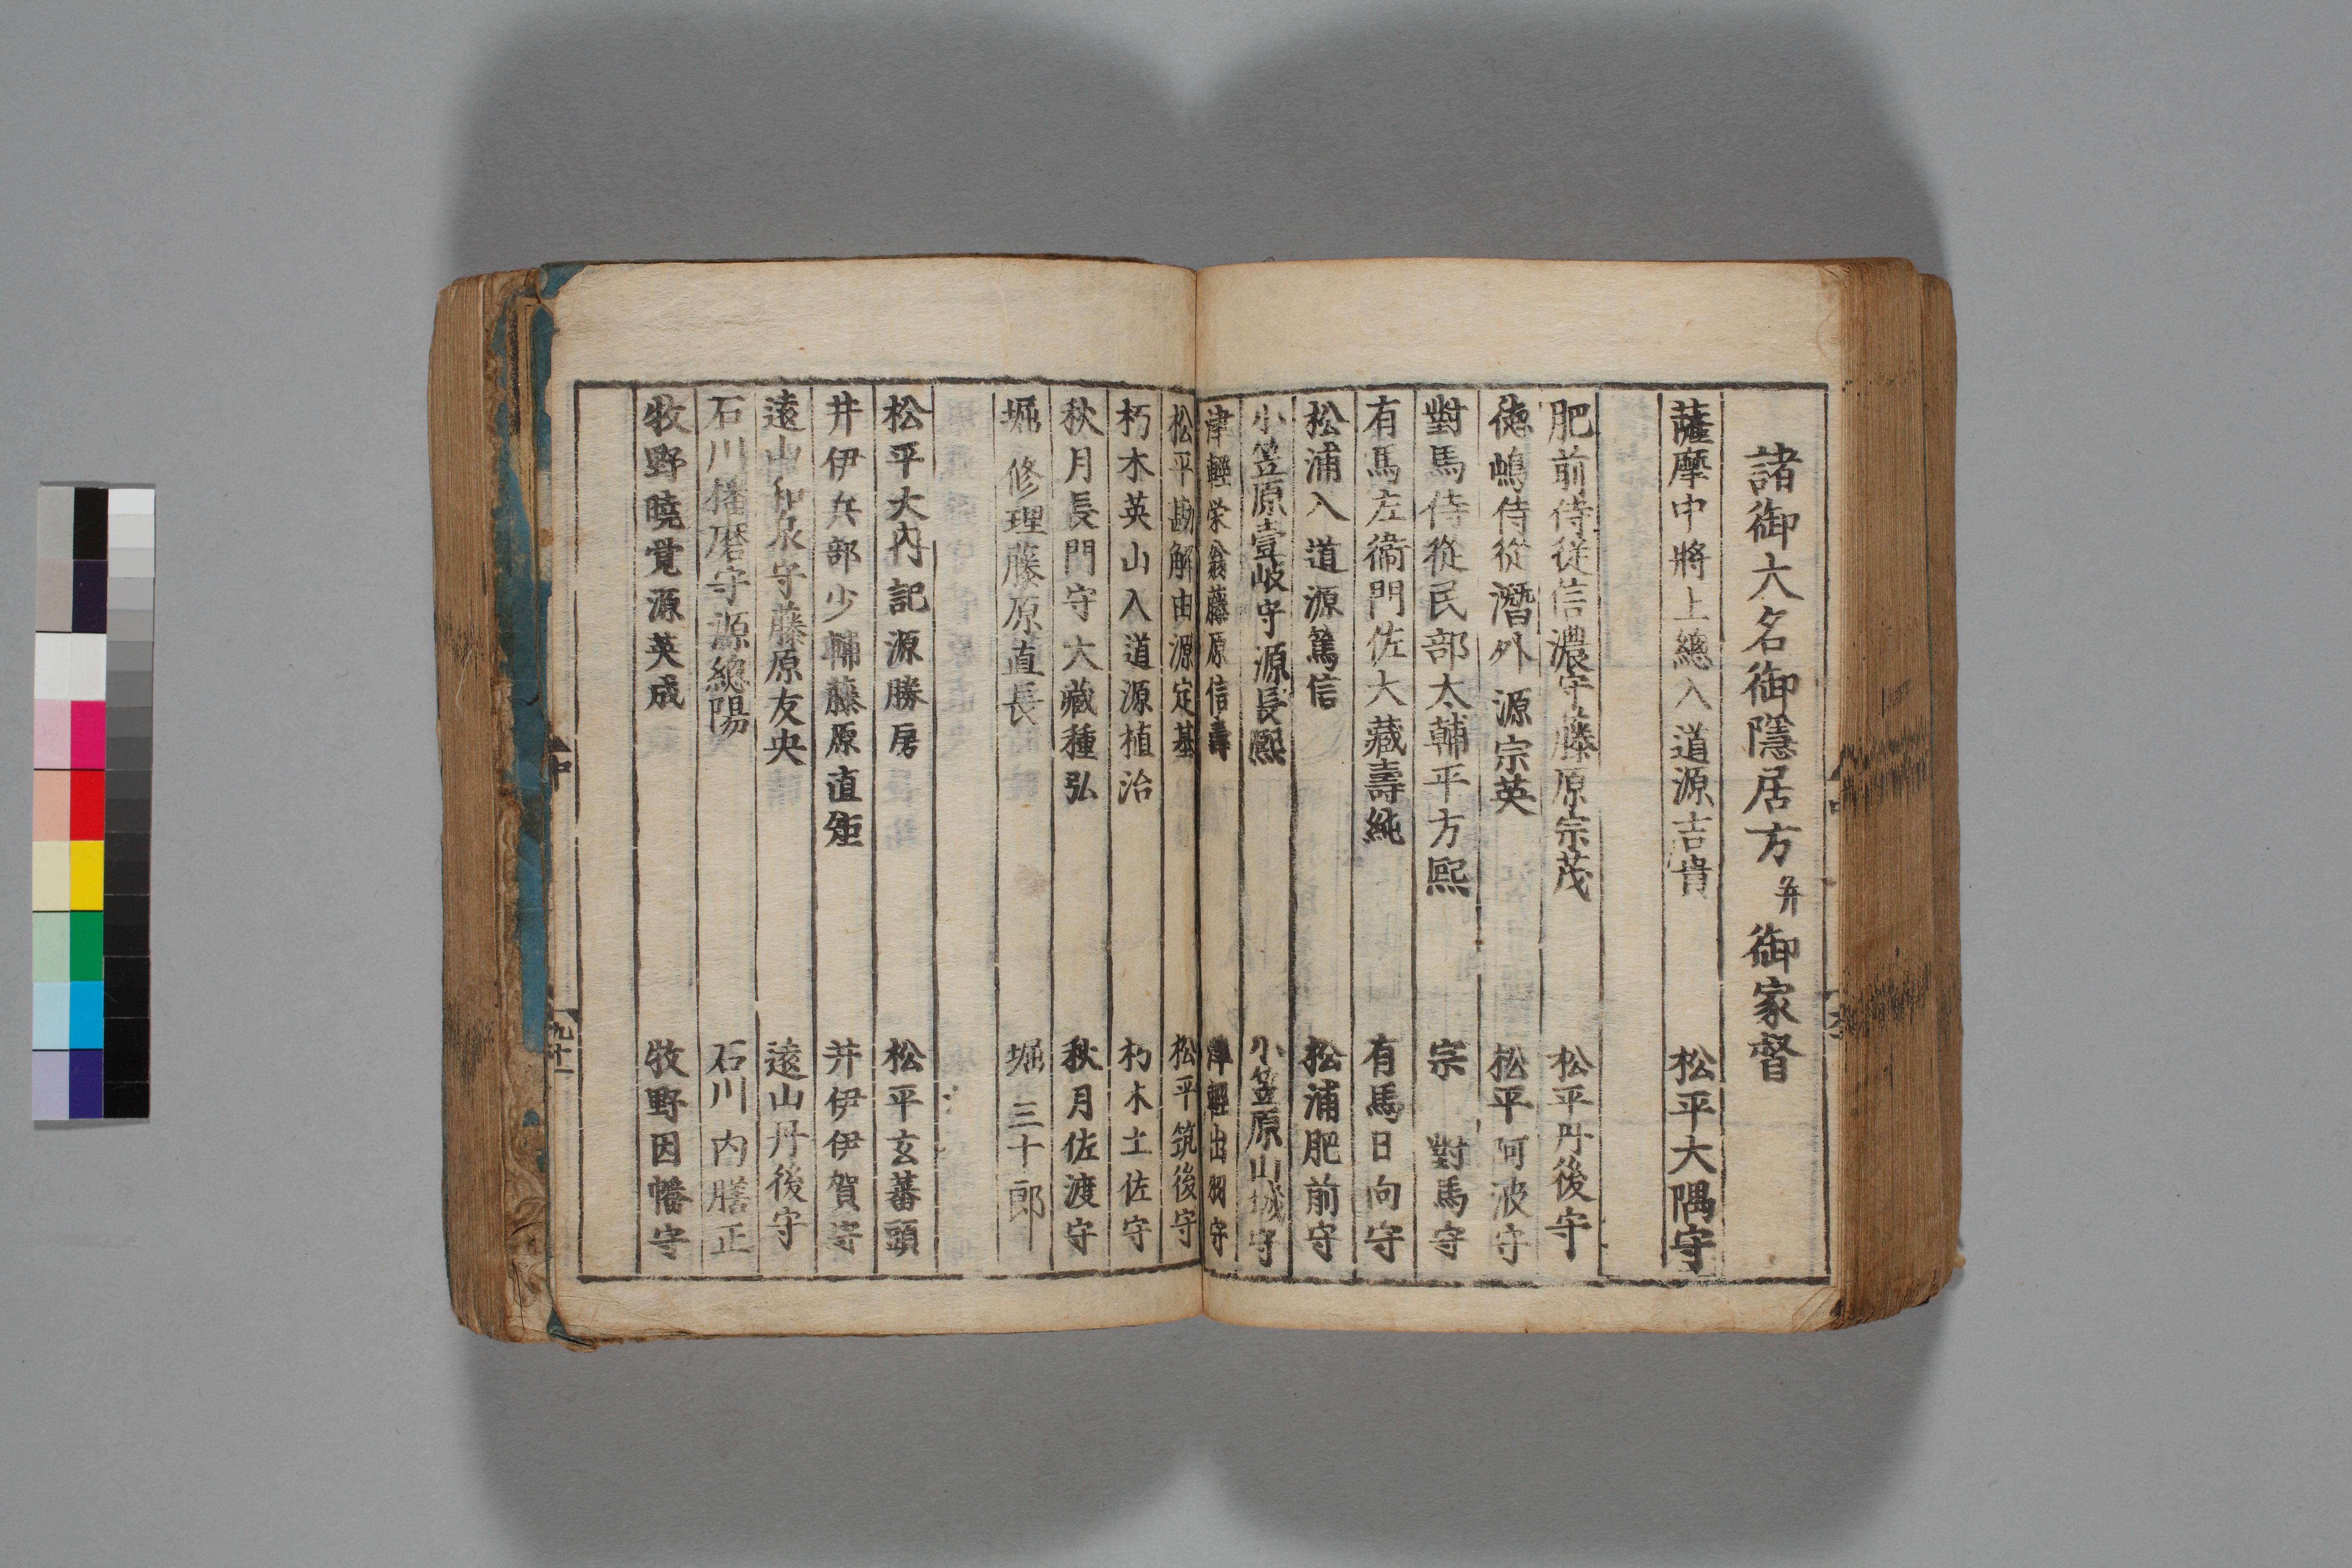 諸御大名御隱居方并御家督
薩摩中將上總入道源吉貴 松平大隅守
肥前侍従信濃守藤原宗茂 松平丹後守
徳嶋侍從潛外源宗英 松平阿波守
對馬侍從民部大輔平方熙 宗對馬守
有馬左衛門佐大藏壽純 有馬日向守
松浦入道源篤信 松浦肥前守
小笠原壹岐守源長熙 小笠原山城守
津輕栄翁藤原信壽 津輕出羽守
松平勘解由源定基 松平筑後守
朽木英山入道源植治 朽木土佐守
秋月長門守大藏種弘 秋月佐渡守
堀修理藤原直長 堀三十郎
松平大内記源勝房 松平玄蕃頭
井伊兵部少輔藤原直矩 井伊伊賀守
遠山和泉守藤原友央 遠山丹後守
石川播磨守源總陽 石川内膳正
牧野曉覚源英成 牧野因幡守
中
九十一